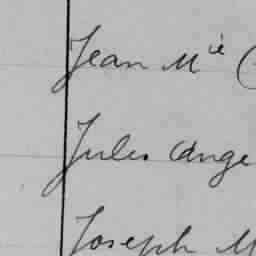 Jean Mie (
Jules Ange
Joseph M